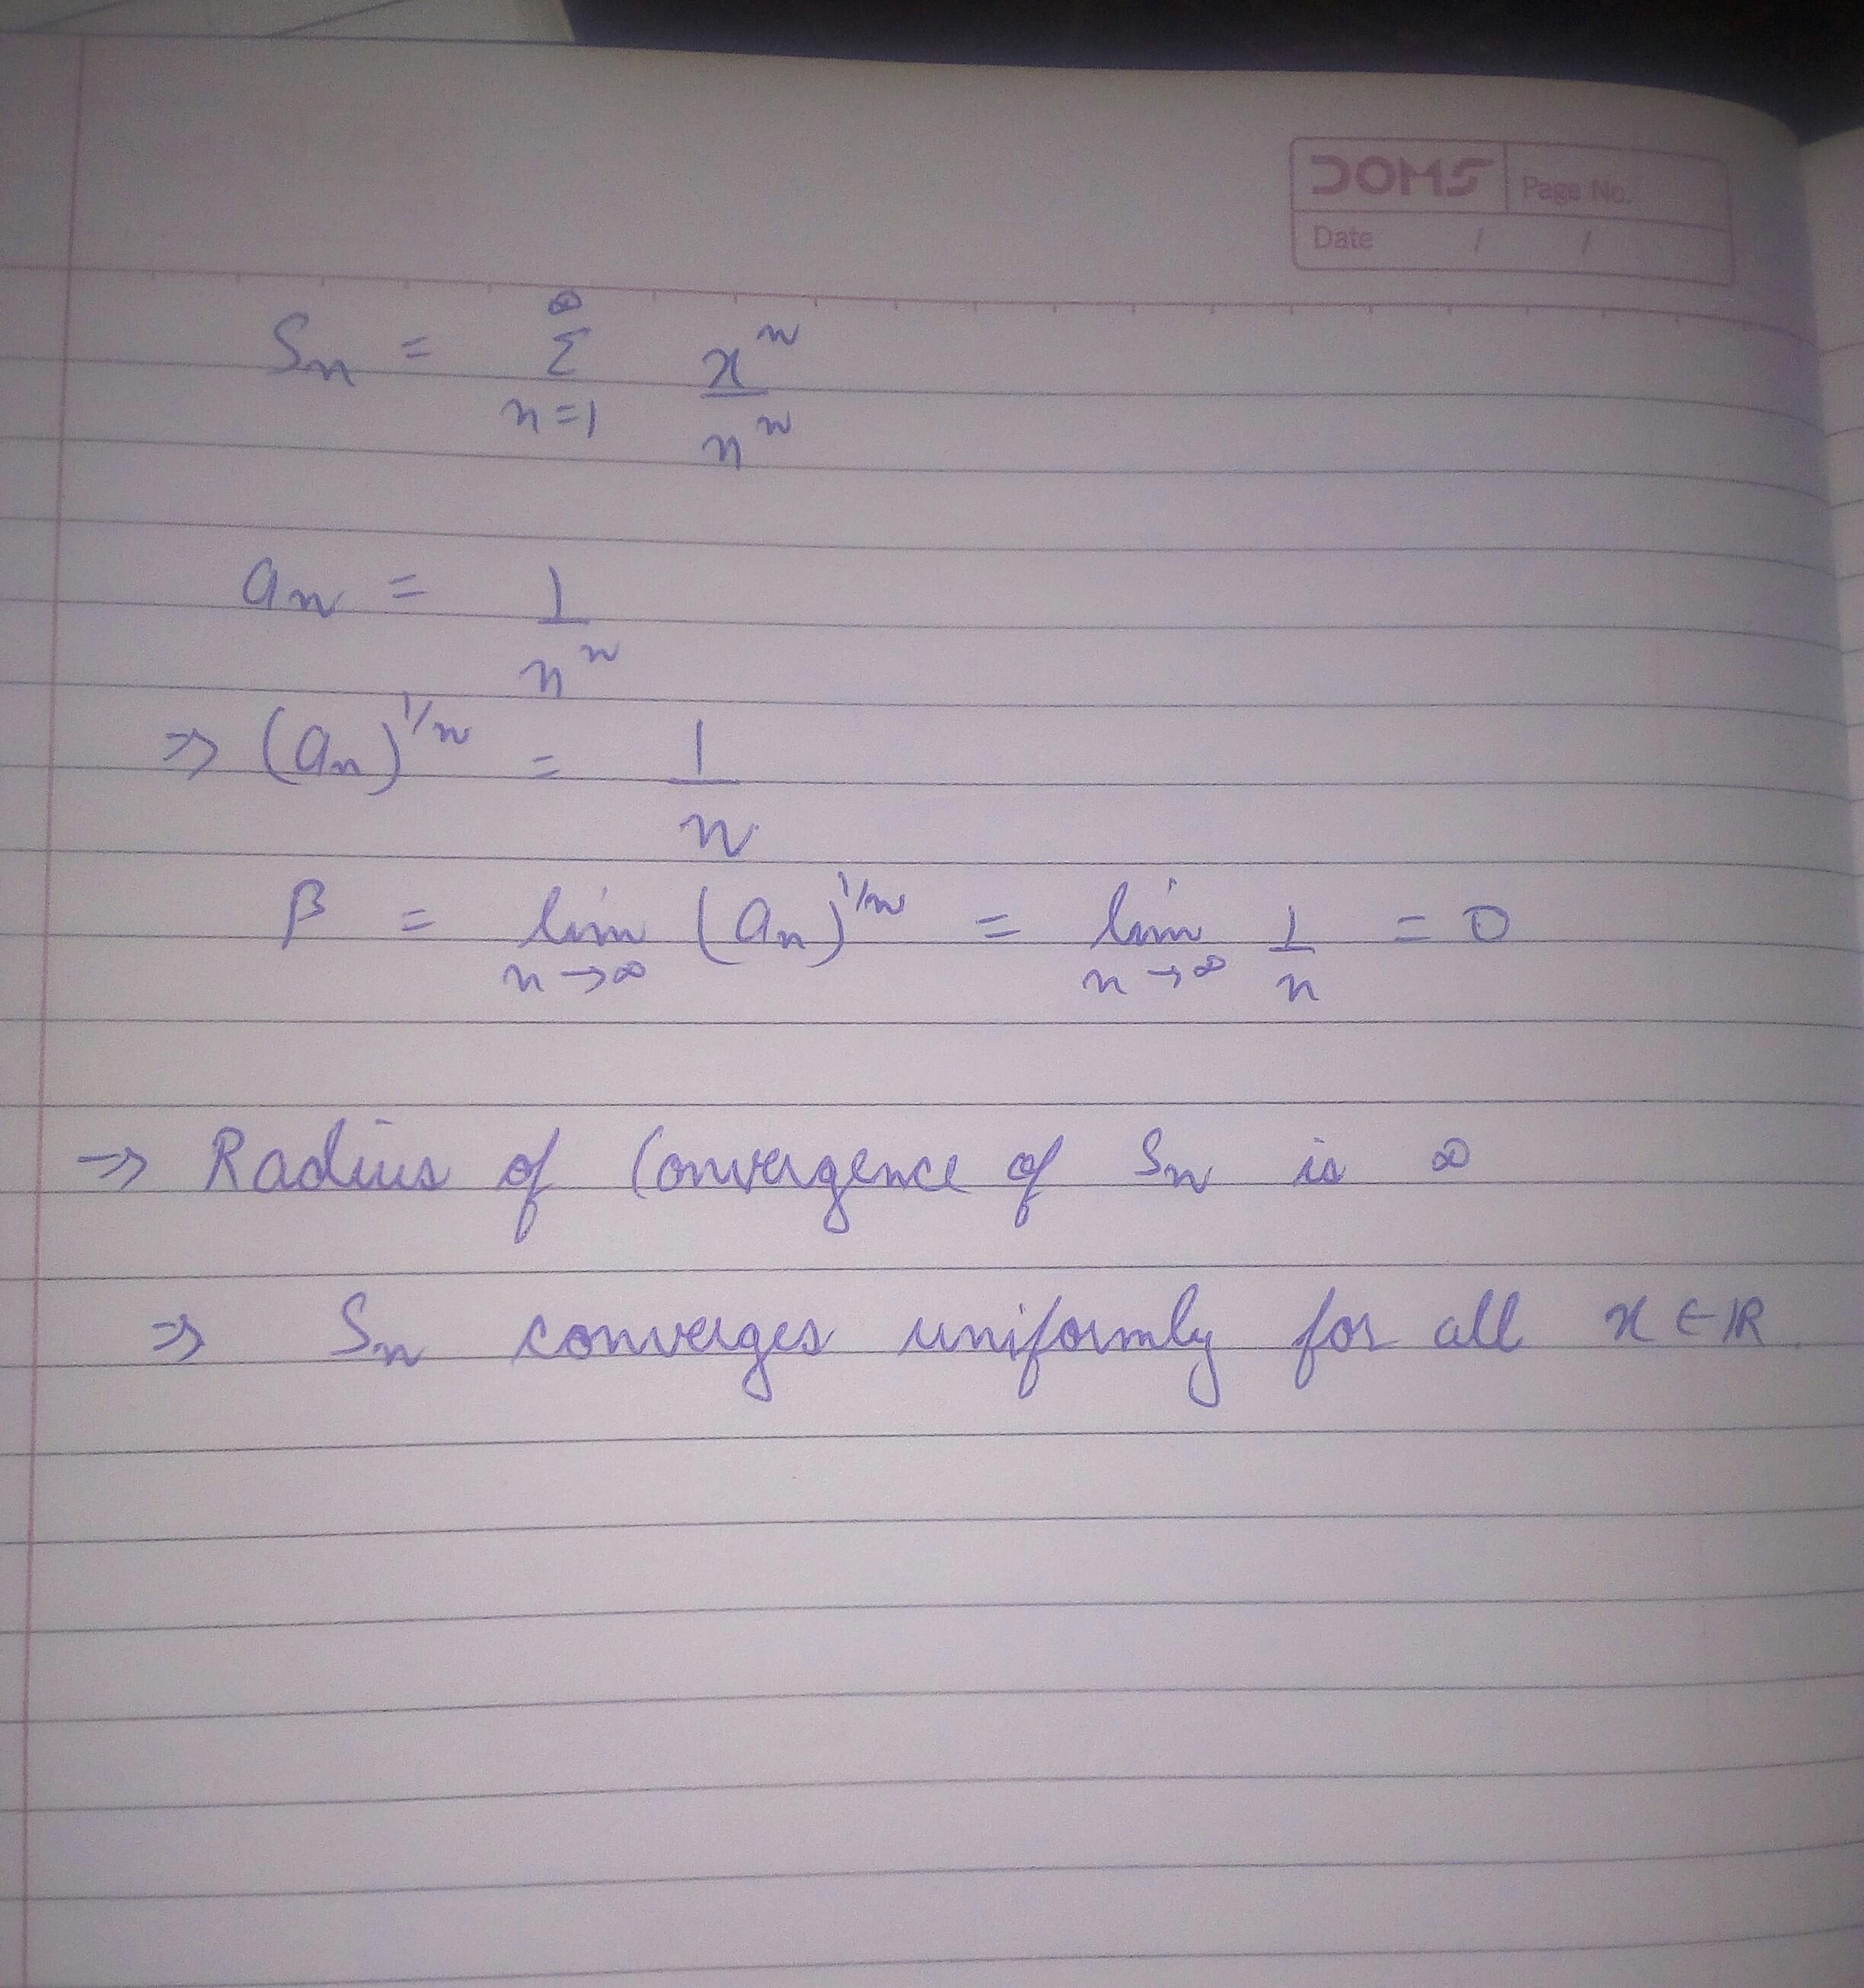 DOMS Page No.
Date / /
Sn = ∞ Σ n=1 xⁿ/nⁿ
an = 1/nⁿ
⇒ (an)^1/n = 1/n
β = lim n→∞ (an)^1/n = lim n→∞ 1/n = 0
⇒ Radius of Convergence of Sn is ∞
⇒ Sn converges uniformly for all x ∈ ℝ.